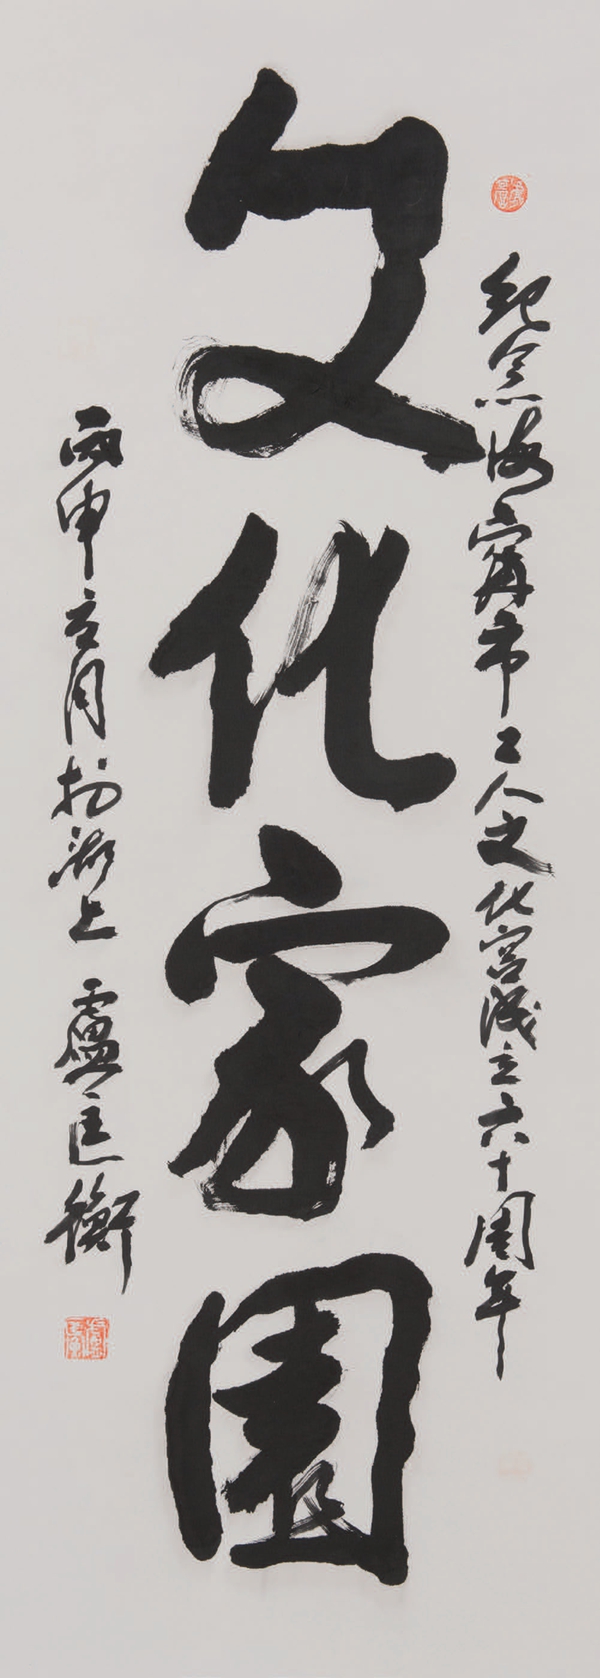 紀念海寧市工人文化宮成立六十周年
文化家園
丙申玄月於上 盧匡衡